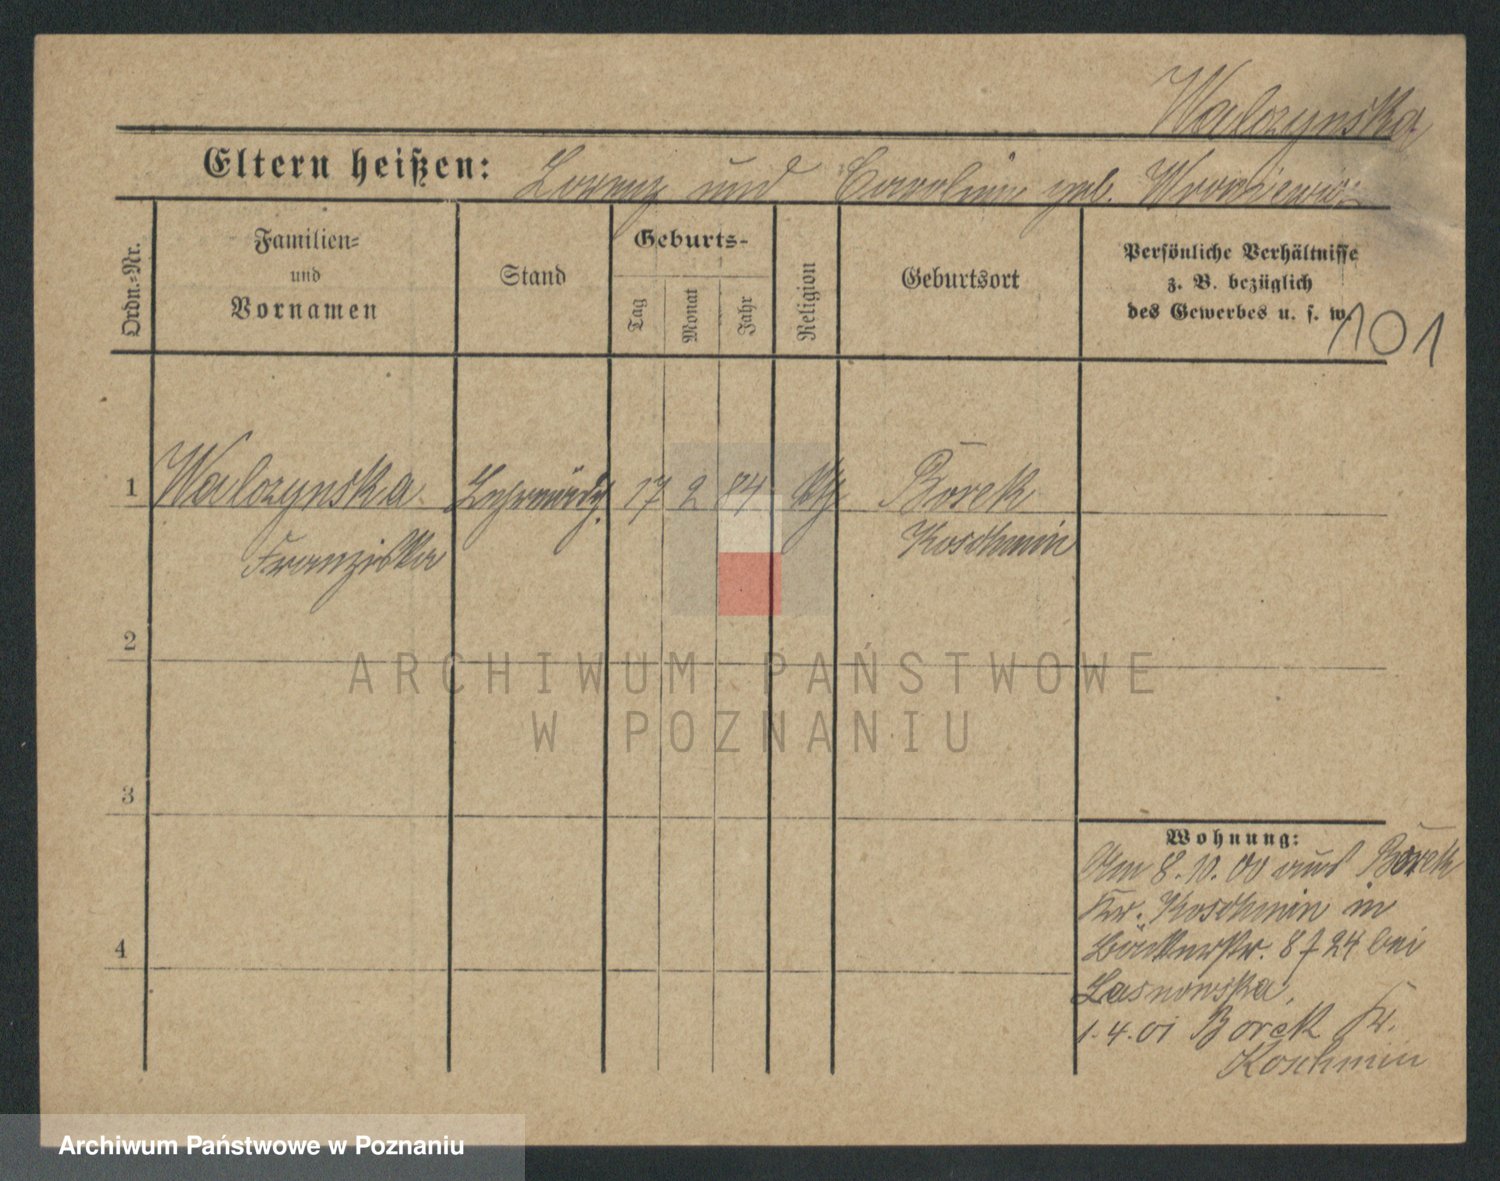 Walozynska
Eltern heißen: Lorenz und Carolina geb.
Ordn.=Nr.
Familien=
und
Vornamen
Stand
Geburts=
Tag
Monat
Jahr
Religion
Geburtsort
Persönliche Verhältnisse
z. B. bezüglich
des Gewerbes u. s. w.
101
1 Walozynska 17 2 84 Borek
Franziska Koschmin
2
ARCHIWUM PAŃSTWOWE
W POZNANIU
3
Wohnung:
Am 8.10.00 aus Borek
Kr. Koschmin in
Bäckerstr. 8 f 24 bei
Lasnowska,
1.4.01 Borek Kr.
Koschmin
4
Archiwum Państwowe w Poznaniu